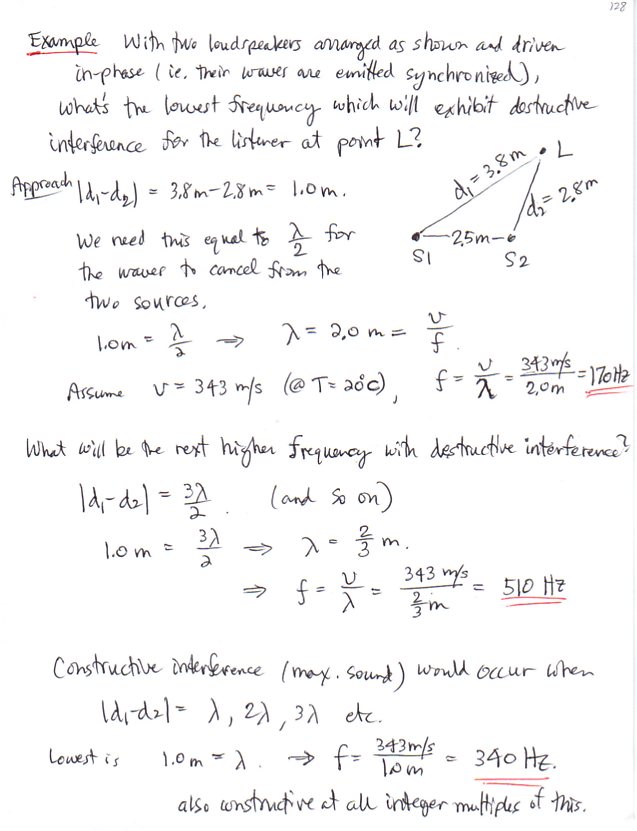 128
Example With two loudspeakers arranged as shown and driven
in-phase (ie. their waves are emitted synchronized),
what's the lowest frequency which will exhibit destructive
interference for the listener at point L?
Approach |d₁-d₂| = 3.8m-2.8m = 1.0m.
L
d₁ = 3.8m
d₂ = 2.8m
2.5m
S1
S2
We need this equal to λ/2 for
the waves to cancel from the
two sources.
1.0m = λ/2 ⇒ λ = 2.0 m = v/f.
Assume v = 343 m/s (@ T = 20°C), f = v/λ = 343 m/s / 2.0m = 170 Hz
What will be the next higher frequency with destructive interference?
|d₁-d₂| = 3λ/2. (and so on)
1.0 m = 3λ/2 ⇒ λ = 2/3 m.
⇒ f = v/λ = 343 m/s / 2/3 m = 510 Hz
Constructive interference (max. sound) would occur when
|d₁-d₂| = λ, 2λ, 3λ etc.
Lowest is 1.0m = λ. ⇒ f = 343 m/s / 1.0 m = 340 Hz.
also constructive at all integer multiples of this.